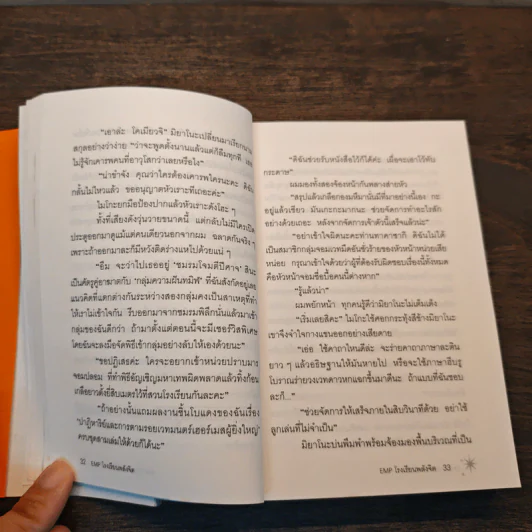 "เอาล่ะ โคเมียวจิ" มิยาโนะเปลี่ยนมาเรียกนาม
สกุลอย่างว่าง่าย "ว่าจะพูดตั้งนานแล้วแต่ก็ลืมทุกที
ไม่รู้จักเคารพคนที่อาวุโสกว่าเลยหรือไง"
"น่าขำจัง คุณว่าใครต้องเคารพใครนะคะ ดิฉัน
กลั้นไม่ไหวแล้ว ขออนุญาตหัวเราะทีเถอะค่ะ"
ไมโกะยกมือป้องปากแล้วหัวเราะดังโฮะ ๆ
ทั้งที่เสียงดังวุ่นวายขนาดนี้ แต่กลับไม่มีใครเปิด
ประตูออกมาดูแม้แต่คนเดียวนอกจากผม ฉลาดกันจริง ๆ
เพราะถ้าออกมาละก็มีหวังติดร่างแหไปด้วยแน่ ๆ
"อืม จะว่าไปเธออยู่ 'ชมรมโจมตีปีศาจ' สินะ
เป็นศัตรูคู่อาฆาตกับ 'กลุ่มความฝันทมิฬ' ที่ฉันสังกัดอยู่เลย
แนวคิดที่แตกต่างกันระหว่างสองกลุ่มคงเป็นสาเหตุที่ทำ
ให้เราไม่เข้าใจกัน รีบออกมาจากชมรมพิลึกนั่นแล้วมาเข้า
กลุ่มของฉันดีกว่า ถ้ามาตั้งแต่ตอนนี้จะมีเซอร์วิสพิเศษ
โดยฉันจะลงมือจัดพิธีเข้ากลุ่มอย่างลับให้เองด้วยนะ"
"ขอปฏิเสธค่ะ ใครจะอยากเข้าหน่วยปราบมาร
จอมปลอม ที่ทำพิธีอัญเชิญมหาเทพผิดพลาดแล้วทิ้งก้อน
เกลือยาวตั้งยี่สิบเมตรไว้ที่สวนโรงเรียนกันละคะ"
"ถ้าอย่างนั้นแถมผลงานชิ้นโบแดงของฉันเรื่อง
ครบชุดสามเล่มให้ด้วยก็ได้นะ"
32 EMP โรงเรียนพลังจิต
"ดิฉันช่วยรับหนังสือไว้ก็ได้ค่ะ เผื่อจะเอาไว้พับ
กระดาษ"
ผมมองทั้งสองจ้องหน้ากันพลางส่ายหัว
"สรุปแล้วเกลือกองมหึมานั่นมีที่มาอย่างนี้เอง กะ
อยู่แล้วเชียว มันเกะกะมากนะ ช่วยจัดการทำอะไรสัก
อย่างด้วยเถอะ หลังจากจัดการเจ้าตัวนี้เสร็จแล้วน่ะ"
"อย่าเข้าใจผิดนะคะท่านทาคาซากิ ดิฉันไม่ได้
เป็นสมาชิกกลุ่มจอมเวทมืดอันชั่วร้ายของหัวหน้าหน่วยเสีย
หน่อย กรุณาเข้าใจด้วยว่าผู้ที่ต้องรับผิดชอบเรื่องนี้ทั้งหมด
คือหัวหน้าจอมซื่อบื้อคนนี้ต่างหาก"
"รู้แล้วน่า"
ผมพยักหน้า ทุกคนรู้ดีว่ามิยาโนะไม่เต็มเต็ง
"เริ่มเลยสิคะ" ไมโกะใช้ศอกกระทุ้งสีข้างมิยาโนะ
เขาจึงจำใจกางแขนออกอย่างเสียดาย
"เอ่อ ใช้คาถาไหนดีล่ะ จะร่ายคาถาภาษาละติน
ยาว ๆ แล้วอธิษฐานให้มันหายไป หรือจะใช้ภาษาฮีบรู
โบราณร่ายวงเวทดาวหกแฉกขึ้นมาดีนะ ถ้าแบบที่ฉันชอบ
ละก็..."
"ช่วยจัดการให้เสร็จภายในสิบวินาทีด้วย อย่าใช้
ลูกเล่นที่ไม่จำเป็น"
มิยาโนะบ่นพึมพำพร้อมจ้องมองพื้นบริเวณที่เป็น
EMP โรงเรียนพลังจิต 33